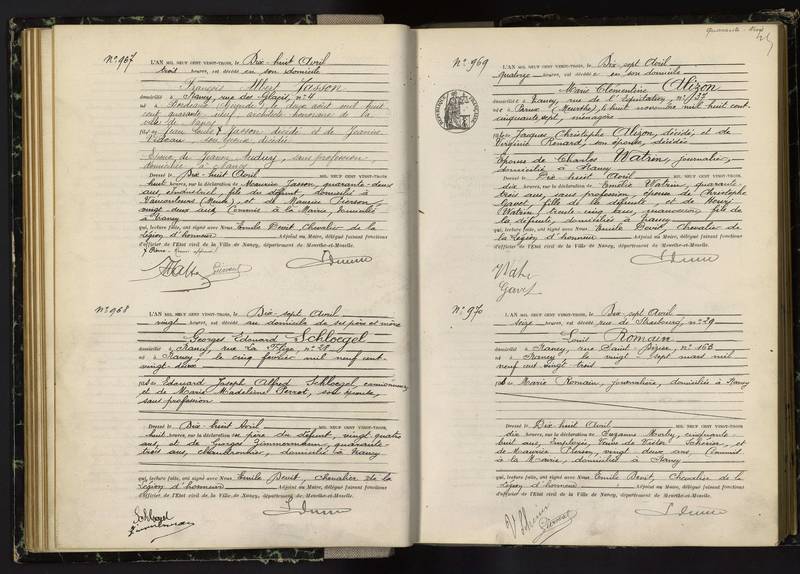 N° 967
L'AN MIL NEUF CENT VINGT-TROIS, le Dix-huit Avril
trois heures, est décédé en son domicile
François Albert Jasson
domicilié à Nancy, rue des Glacis, n° 4
né à Bordeaux (Gironde), le deux août mil huit
cent quarante neuf, architecte honoraire de la
ville de Nancy
fils de Jean Emile Jasson décédé et de Jeanne
Videau, son épouse décédée
Epoux de Jeanne, sans profession,
domiciliée à Nancy
Dressé le Dix-huit Avril MIL NEUF CENT VINGT-TROIS,
huit heures, sur la déclaration de Maurice Jasson, quarante-deux
ans, industriel, fils du défunt, domicilié à
Vaucouleurs (Meuse), et de Maurice Pierson,
vingt-deux ans, Commis à la Mairie, domicilié
à Nancy
qui, lecture faite, ont signé avec Nous Emile Devit, Chevalier de la
Légion d'honneur Adjoint au Maire, délégué faisant fonctions
d'officier de l'Etat civil de la Ville de Nancy, département de Meurthe-et-Moselle.
N° 968
L'AN MIL NEUF CENT VINGT-TROIS, le Dix-sept Avril
vingt heures, est décédé au domicile de ses père et mère
Georges Edouard Schloegel
domicilié à Nancy, rue La Flize, n° 28
né à Nancy, le cinq février mil neuf cent
vingt-deux
fils de Edouard Joseph Alfred Schloegel, camionneur,
et de Marie Madeleine Perrot, son épouse,
sans profession
Dressé le Dix-huit Avril MIL NEUF CENT VINGT-TROIS,
huit heures, sur la déclaration du père du défunt, vingt-quatre
ans, et de Georges Zimmermann, quarante-
trois ans, Chambonnier, domiciliés à Nancy
qui, lecture faite, ont signé avec Nous Emile Devit, chevalier de la
Légion d'honneur Adjoint au Maire, délégué faisant fonctions
d'officier de l'Etat civil de la Ville de Nancy, département de Meurthe-et-Moselle.
Schloegel
Zimmermann
N° 969
L'AN MIL NEUF CENT VINGT-TROIS, le Dix-sept Avril
quatorze heures, est décédée en son domicile
Marie Clémentine Alizon
domiciliée à Nancy, rue de l'Equitation, n° 37
née à Broux (Meurthe), le huit novembre mil huit cent
cinquante sept, ménagère
fille de Jacques Christophe Alizon, décédé, et de
Virginie Renard, son épouse, décédée
Epouse de Charles Watrin, journalier,
domicilié à Nancy
Dressé le Dix-huit Avril MIL NEUF CENT VINGT-TROIS,
dix heures, sur la déclaration de Emélie Watrin, quarante-
trois ans, sans profession, épouse de Christophe
Gavet, fille de la défunte, et de Henri
Watrin, trente cinq ans, fils de
la défunte, domiciliés à Nancy
qui, lecture faite, ont signé avec Nous Emile Devit, Chevalier de
la Légion d'honneur Adjoint au Maire, délégué faisant fonctions
d'officier de l'Etat civil de la Ville de Nancy, département de Meurthe-et-Moselle.
Gavet
N° 970
L'AN MIL NEUF CENT VINGT-TROIS, le Dix-sept Avril
seize heures, est décédé rue de Strasbourg, n° 29
Louis Romain
domicilié à Nancy, rue Saint-Dizier, n° 163
né à Nancy, le vingt-sept mars mil
neuf cent vingt-trois
fils de Marie Romain, journalière, domiciliée à Nancy
Dressé le Dix-huit Avril MIL NEUF CENT VINGT-TROIS,
dix heures, sur la déclaration de Suzanne Morby, cinquante-
huit ans, Employée, Veuve de Victor Schérier, et
de Maurice Pierson, vingt-deux ans, Commis
à la Mairie, domiciliés à Nancy
qui, lecture faite, ont signé avec Nous Emile Devit, Chevalier de la
Légion d'honneur Adjoint au Maire, délégué faisant fonctions
d'officier de l'Etat civil de la Ville de Nancy, département de Meurthe-et-Moselle.